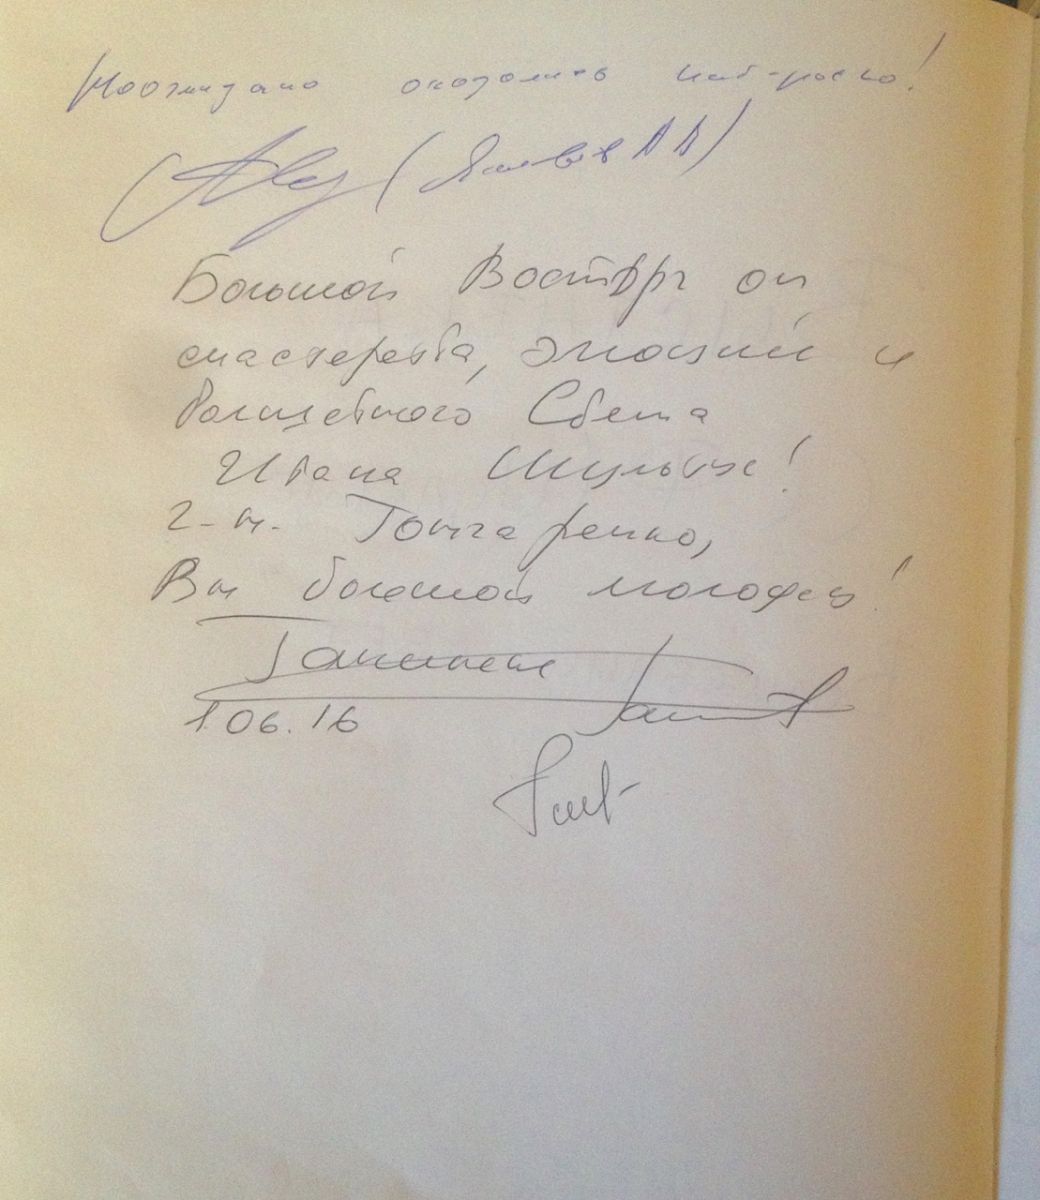 Неожидано оказалось интересно!
Большой Восторг от
мастерства, эмоций и
Волшебного Света
Ивана Шульце!
г-н. Гончаренко,
Вы большой молодец!
1.06.16